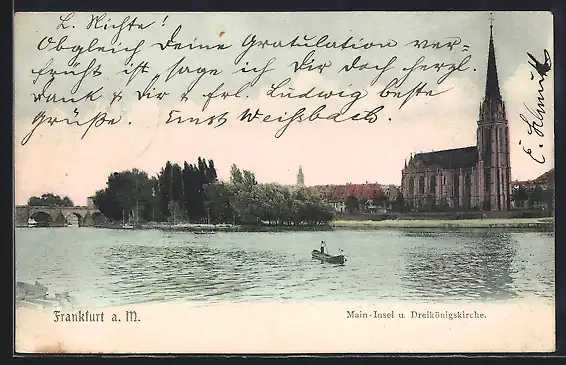 L. Nichte!
Obgleich Deine Gratulation ver-
früht ist sage ich Dir doch herzl.
Dank & Dir & frl. Ludwig beste
Grüße. Ernst Weissbach.
E. Schmidt
Frankfurt a. M.
Main-Insel u. Dreikönigskirche.